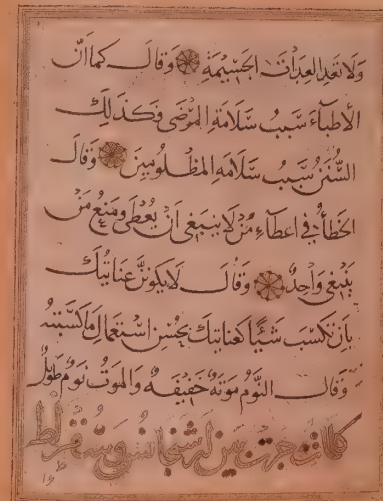 وَلَا تعَد العِدَاتَ الجَسِيمَة وَقالَ كما اَنّ
الأطباءَ سَبب سَلامَة المرضى فكذلِك
السُنَن سَبب سَلامَة المظلومينَ وَقالَ
الخطأ في اعطاءِ مَنْ لا ينبغى اَنْ يُعطى ومَنع مَن
ينبَغى وَاحدٌ وَقالَ لا يكونَنّ عنايتك
بِاَن تكسَب شَيئًا كعنايتك بحُسن اسْتعمال مَا كسَبتهُ
وَقال النَوم مَوتة خفيفه والموت نَوم طويل